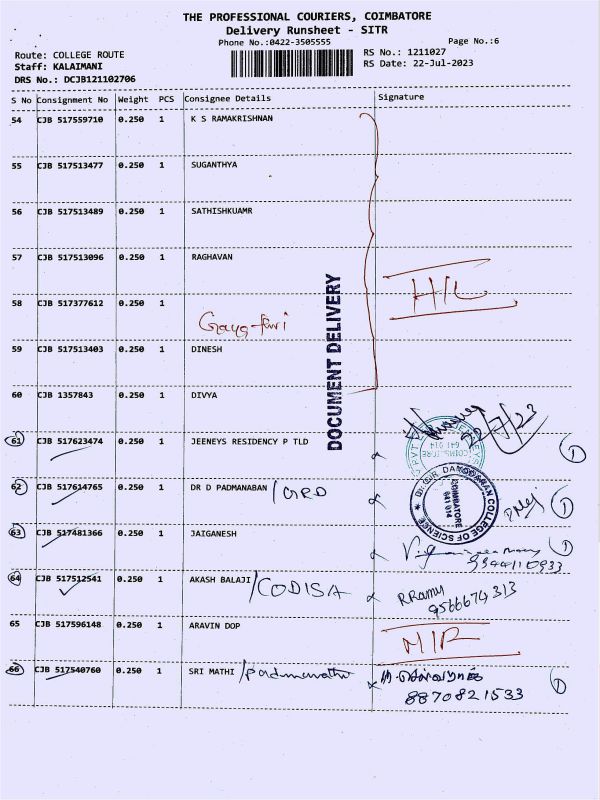 THE PROFESSIONAL COURIERS, COIMBATORE
Delivery Runsheet - SITR
Phone No.:0422-3505555 Page No.:6
Route: COLLEGE ROUTE RS No.: 1211027
Staff: KALAIMANI RS Date: 22-Jul-2023
DRS No.: DCJB121102706
S No Consignment No Weight PCS Consignee Details Signature
54 CJB 517559710 0.250 1 K S RAMAKRISHNAN
55 CJB 517513477 0.250 1 SUGANTHYA
56 CJB 517513489 0.250 1 SATHISHKUAMR
57 CJB 517513096 0.250 1 RAGHAVAN
H/L
58 CJB 517377612 0.250 1
DOCUMENT DELIVERY
59 CJB 517513403 0.250 1 DINESH
60 CJB 1357843 0.250 1 DIVYA
22/7/23
61 CJB 517623474 0.250 1 JEENEYS RESIDENCY P TLD
COIMBATORE
641 014
62 CJB 517614765 0.250 1 DR D PADMANABAN / GRD
DR. GR DAMODARAN COLLEGE OF SCIENCE
COIMBATORE
641 014
63 CJB 517481366 0.250 1 JAIGANESH
9344110933
64 CJB 517512541 0.250 1 AKASH BALAJI / CODISA R Ramy
9566674313
65 CJB 517596148 0.250 1 ARAVIN DOP
M/R
66 CJB 517540760 0.250 1 SRI MATHI / Padmavathi
8870821533